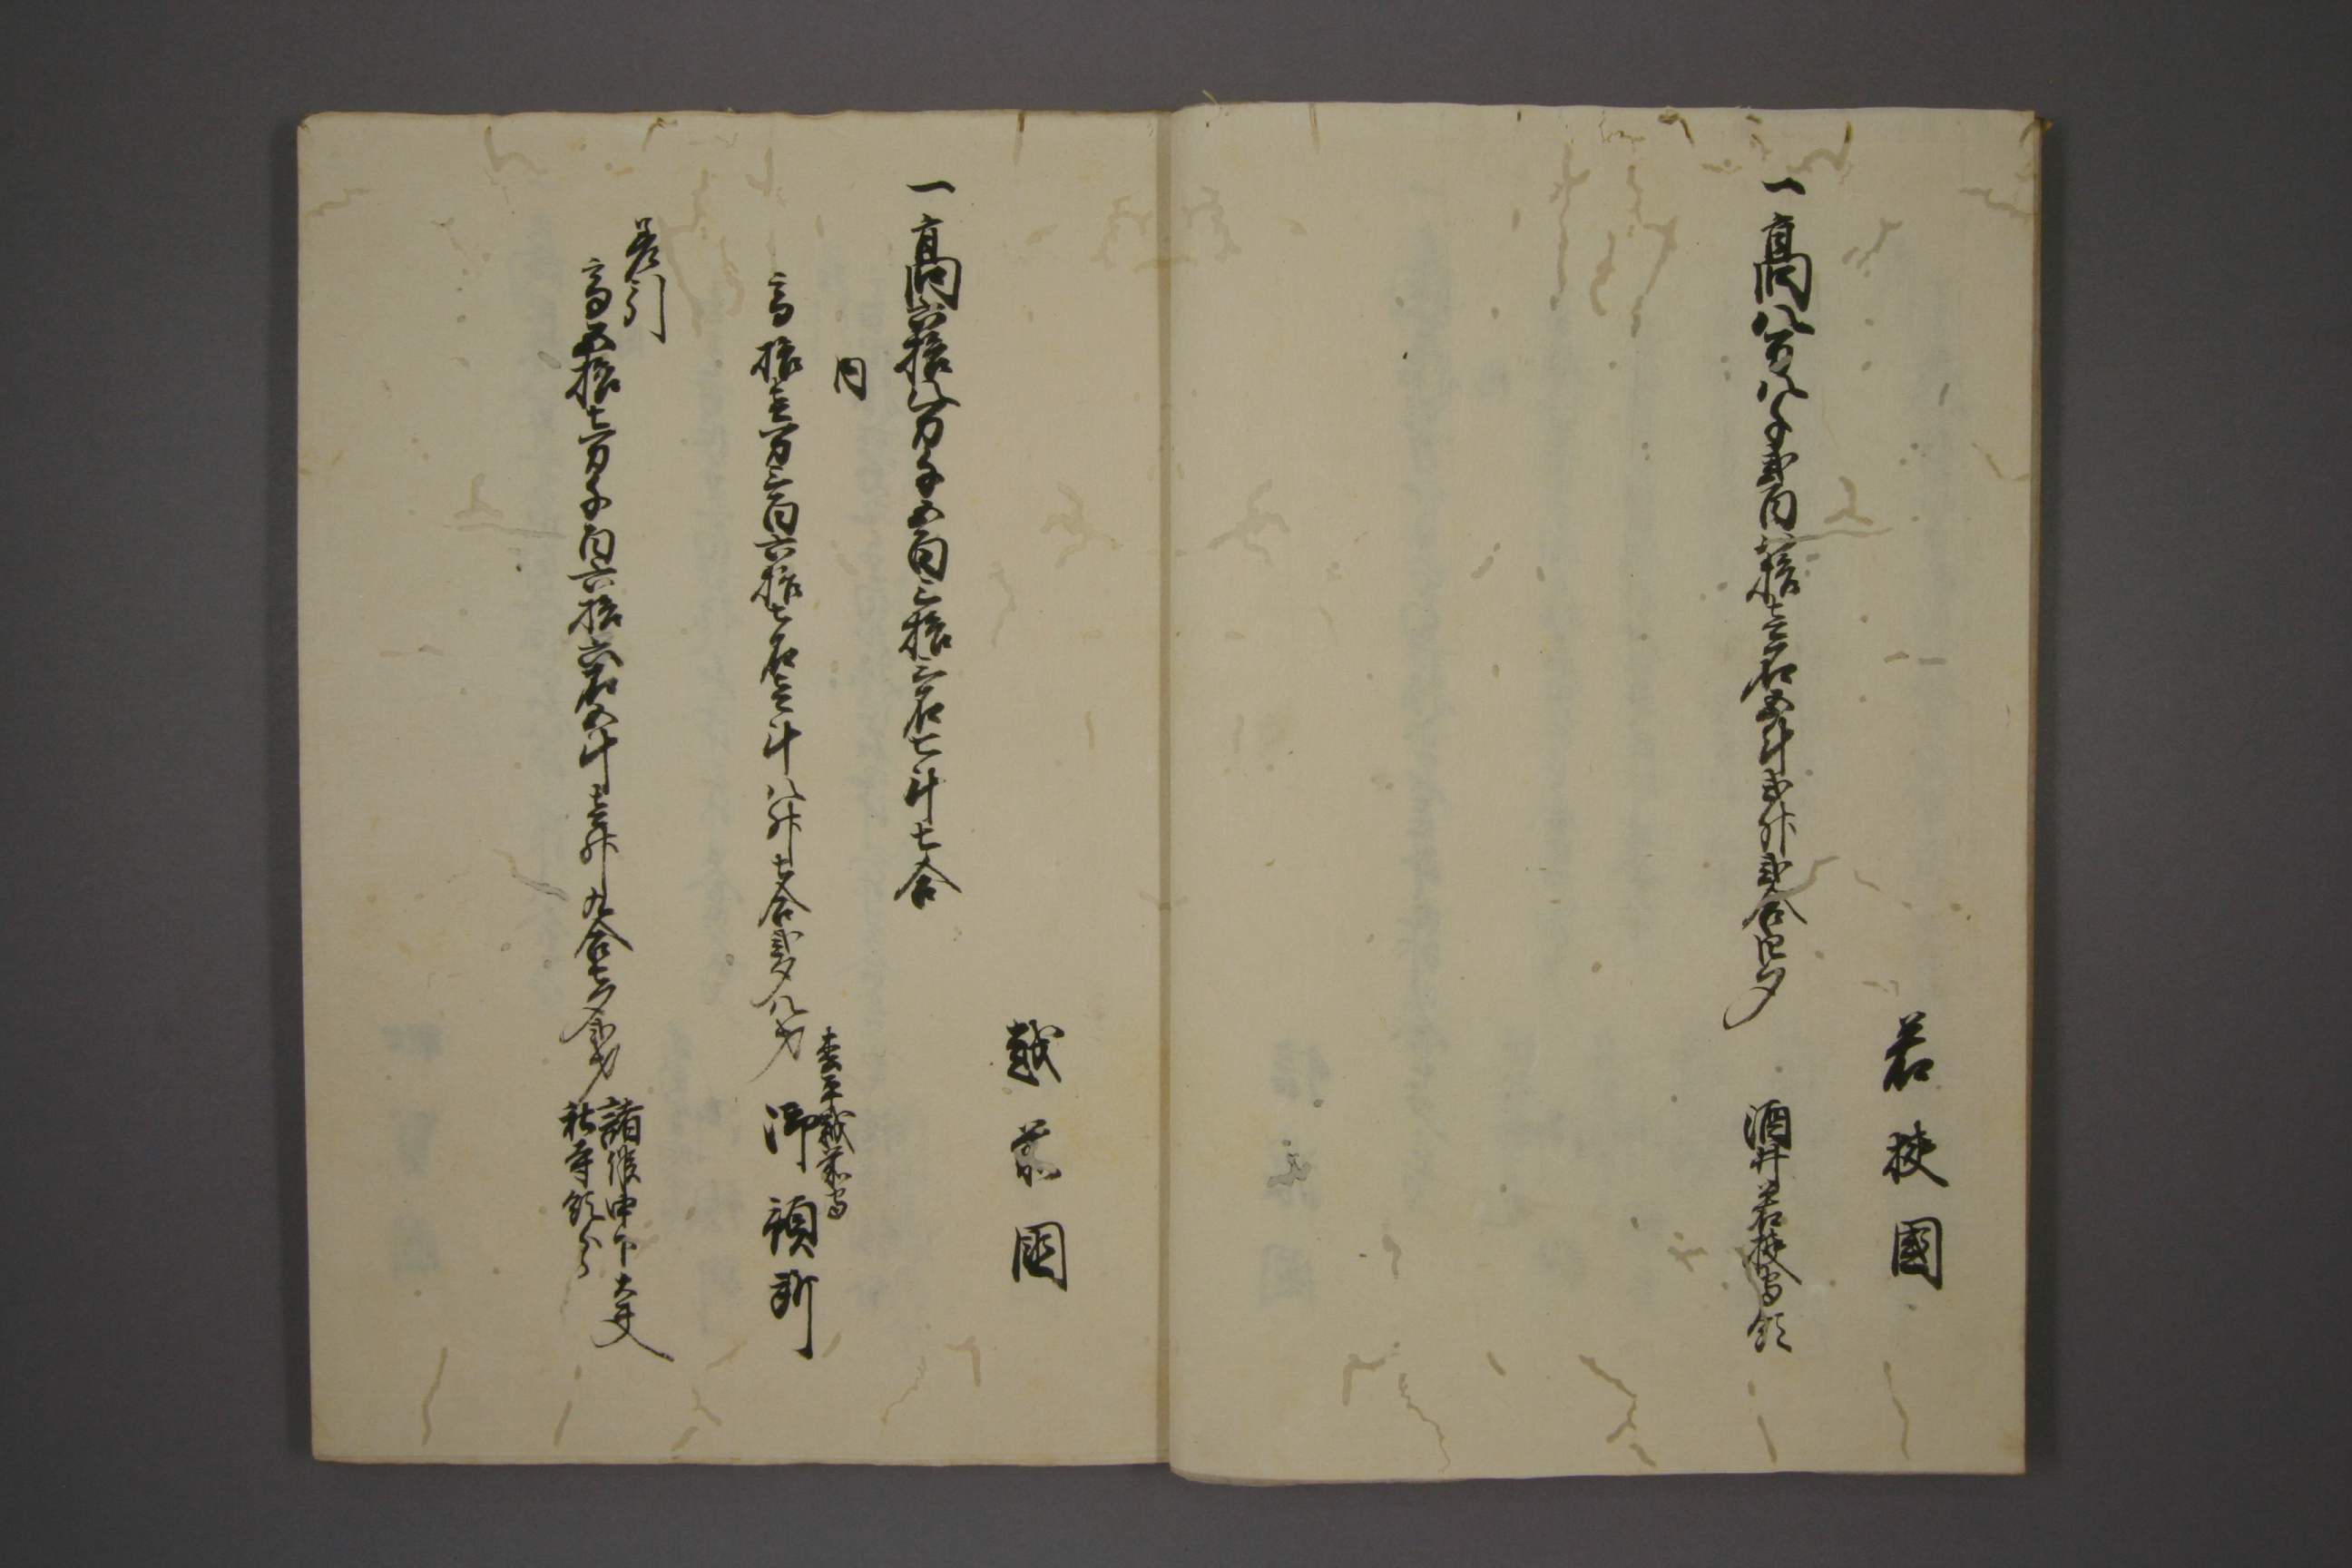 若狭國
一高八万八千弐百八拾壱石五斗弐升弐合四夕 酒井若狭守領
越前國
一高六拾八万千五百三拾三石七斗七合
内
高拾壱万三百六拾七石壱斗八升七合弐夕八才 松平越前守 御預所
差引
高五拾七万千百六拾六石五斗壱升九合七夕弐才 諸侯中下大夫
社寺領分